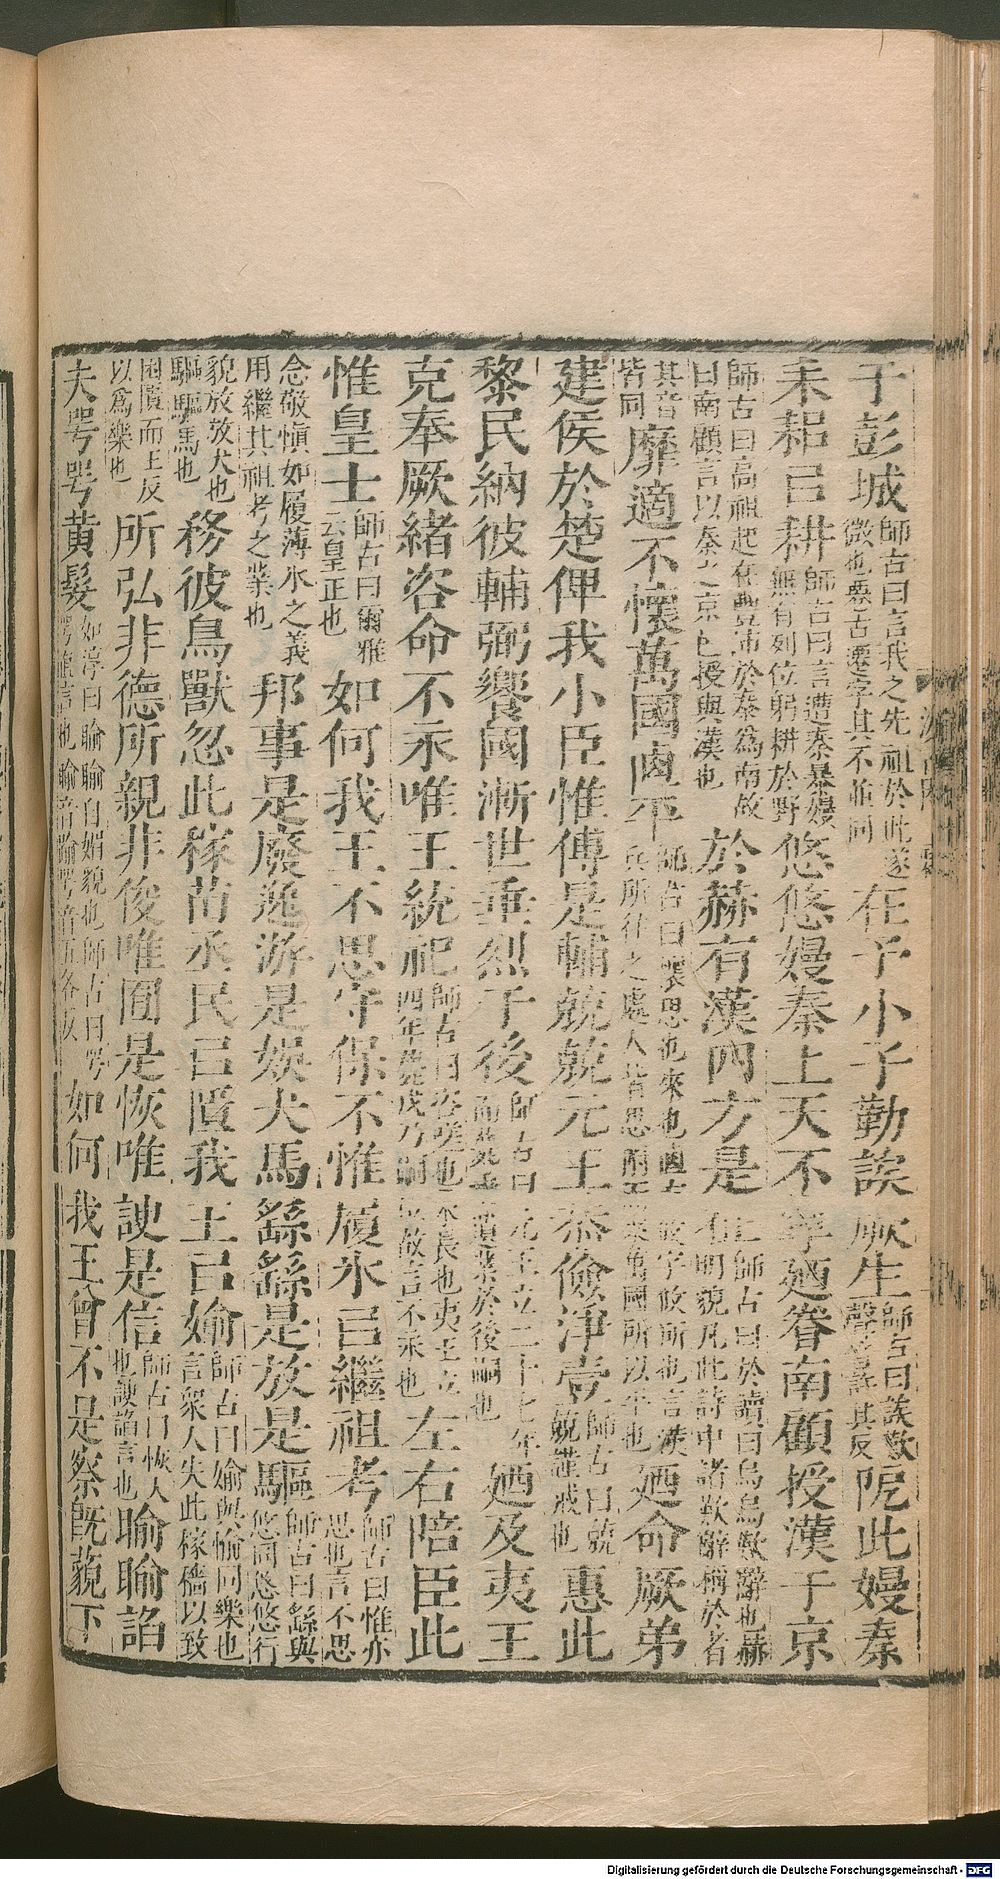 于彭城師古曰言我之先祖於此遂微也䙴古遷字其不並同在予小子勤誒厥生師古曰誒歎聲音許其反阸此嫚秦
耒耜㠯耕師古曰言遭秦暴嫚無有列位躬耕於野悠悠嫚秦上天不寧廼眷南顧授漢于京
師古曰高祖起在豐沛於秦爲南故曰南顧言以秦之京邑授與漢也於赫有漢四方是征師古曰於讀曰烏烏歎辭也赫明貌凡此詩中諸歎辭稱於者
其音皆同靡適不懷萬國逌平師古曰懷思也來也逌古攸字攸所也言漢兵所往之處人皆思附而來萬國所以平也廼命厥弟
建侯於楚俾我小臣惟傅是輔兢兢元王恭儉淨壹師古曰兢兢謹戒也惠此
黎民納彼輔弼饗國漸世垂烈于後師古曰元王立二十七年而薨垂遺業於後嗣也廼及夷王
克奉厥緒咨命不永唯王統祀師古曰咨嗟也永長也夷王立四年薨戊乃嗣故言不永也左右陪臣此
惟皇士師古曰爾雅云皇正也如何我王不思守保不惟履冰㠯繼祖考師古曰惟亦思也言不思
念敬愼如履薄冰之義用繼其祖考之業也邦事是廢逸游是娛犬馬繇繇是放是驅師古曰繇與悠同悠悠行
貌放放犬也驅驅馬也務彼鳥獸忽此稼苗烝民㠯匱我王㠯媮師古曰媮與愉同樂也言衆人失此稼穡以致
困匱而王反以爲樂也所弘非德所親非俊唯囿是恢唯諛是信師古曰恢大也諛諂言也睮睮諂
夫咢咢黃髮如淳曰睮睮自媚貌也師古曰咢咢直言也睮音踰咢音五各反如何我王曾不是察旣藐下
Digitalisierung gefördert durch die Deutsche Forschungsgemeinschaft - DFG